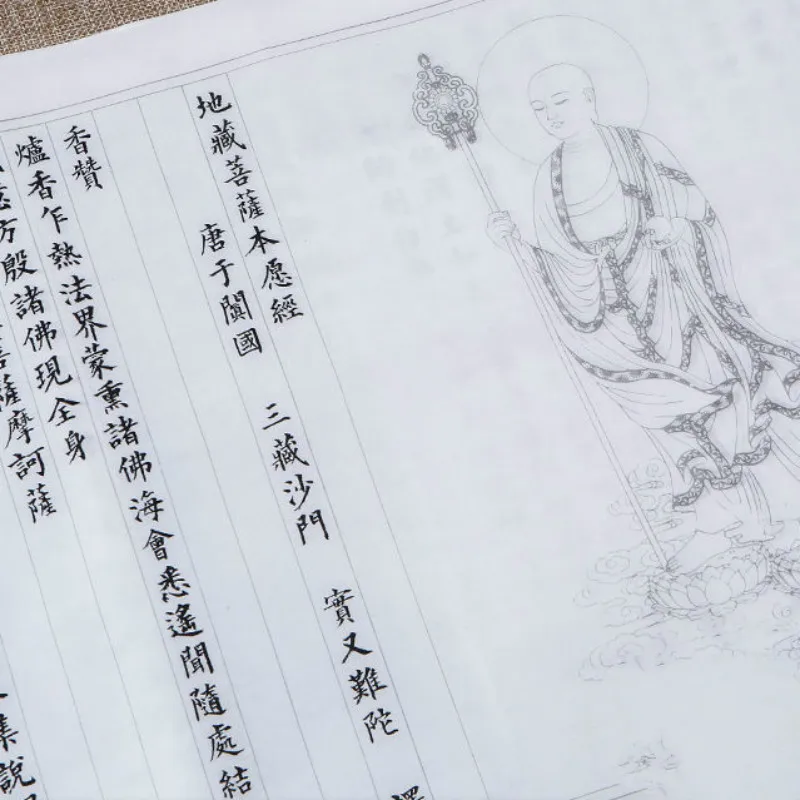 地藏菩薩本愿經
唐于闐國 三藏沙門 實又難陀 譯
香贊
爐香乍熱法界蒙熏諸佛海會悉遙聞隨處結
方殷諸佛現全身
菩薩摩訶薩
集說